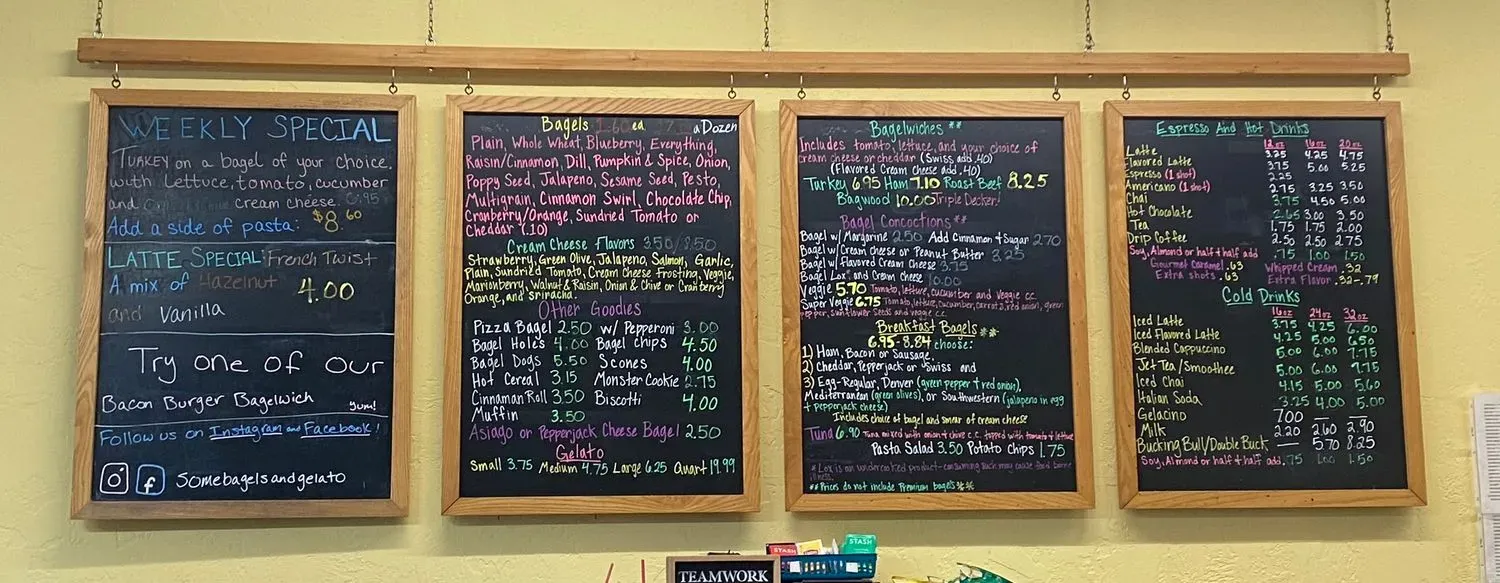 WEEKLY SPECIAL
TURKEY on a bagel of your choice.
with Lettuce, tomato, cucumber
and cream cheese. 6.95
Add a side of pasta: $8.60
LATTE SPECIAL: French Twist
A mix of Hazelnut 4.00
and Vanilla
Try one of our
Bacon Burger Bagelwich yum!
Follow us on Instagram and Facebook!
f Somebagelsandgelato
Bagels 1.60 ea a Dozen
Plain, Whole Wheat, Blueberry, Everything,
Raisin/Cinnamon, Dill, Pumpkin & Spice, Onion,
Poppy Seed, Jalapeno, Sesame Seed, Pesto,
Multigrain, Cinnamon Swirl, Chocolate Chip,
Cranberry/Orange, Sundried Tomato or
Cheddar (.10)
Cream Cheese Flavors 3.50/8.50
Strawberry, Green Olive, Jalapeno, Salmon, Garlic,
Plain, Sundried Tomato, Cream Cheese Frosting, Veggie,
Marionberry, Walnut & Raisin, Onion & Chive or Cranberry
Orange, and sriracha.
Other Goodies
Pizza Bagel 2.50 w/ Pepperoni 3.00
Bagel Holes 4.00 Bagel chips 4.50
Bagel Dogs 5.50 Scones 4.00
Hot Cereal 3.15 Monster Cookie 2.75
Cinnaman Roll 3.50 Biscotti 4.00
Muffin 3.50
Asiago or Pepperjack Cheese Bagel 2.50
Gelato
Small 3.75 Medium 4.75 Large 6.25 Quart 19.99
Bagelwiches **
Includes tomato, lettuce, and your choice of
cream cheese or cheddar (Swiss add .40)
(Flavored Cream Cheese add .40)
Turkey 6.95 Ham 7.10 Roast Beef 8.25
Bagwood 10.00 Triple Decker!
Bagel Concoctions **
Bagel w/ Margarine 2.50 Add Cinnamon + Sugar 2.70
Bagel w/ Cream Cheese or Peanut Butter 3.25
Bagel w/ Flavored Cream Cheese 3.75
Bagel Lox and Cream Cheese 10.00
Veggie 5.70 Tomato, lettuce, cucumber and veggie c.c.
Super Veggie 6.75 Tomato, lettuce, cucumber, carrots, red onion, green
pepper, sunflower seeds and veggie c.c.
Breakfast Bagels **
6.95-8.84 choose:
1) Ham, Bacon or Sausage,
2) Cheddar, Pepperjack or Swiss and
3) Egg-Regular, Denver (green pepper + red onion),
Mediterranean (green olives), or Southwestern (jalapeno in egg
+ pepperjack cheese)
Includes choice of bagel and smear of cream cheese
Tuna 6.90 Tuna mixed with onion + chive c.c. topped with tomato + lettuce
Pasta Salad 3.50 Potato Chips 1.75
* Lox is an undercooked product-consuming such may cause food borne
illness.
** Prices do not include Premium bagels **
Espresso And Hot Drinks
12 oz 16 oz 20 oz
Latte 3.25 4.25 4.75
Flavored Latte 3.75 5.00 5.25
Espresso (1 shot) 2.25
Americano (1 shot) 2.75 3.25 3.50
Chai 3.75 4.50 5.00
Hot Chocolate 2.65 3.00 3.50
Tea 1.75 1.75 2.00
Drip Coffee 2.50 2.50 2.75
Soy, Almond or half + half add .75 1.00 1.50
Gourmet Caramel .63 Whipped Cream .32
Extra shots .63 Extra Flavor .32-.79
Cold Drinks
16 oz 24 oz 32 oz
Iced Latte 3.75 4.25 6.00
Iced Flavored Latte 4.25 5.00 6.50
Blended Cappuccino 5.00 6.00 7.75
Jet Tea/Smoothee 5.00 6.00 7.75
Iced Chai 4.15 5.00 5.60
Italian Soda 3.25 4.00 5.00
Gelacino 7.00 — —
Milk 2.20 2.60 2.90
Bucking Bull/Double Buck — 5.70 8.25
Soy, Almond or half + half add .75 1.00 1.50
STASH
STASH
TEAMWORK